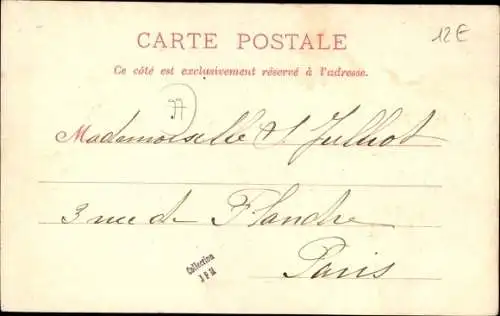 CARTE POSTALE
12E
Ce côté est exclusivement réservé à l'adresse.
Mademoiselle S Julliot
3 rue de Planche
Paris
Collection
J P M